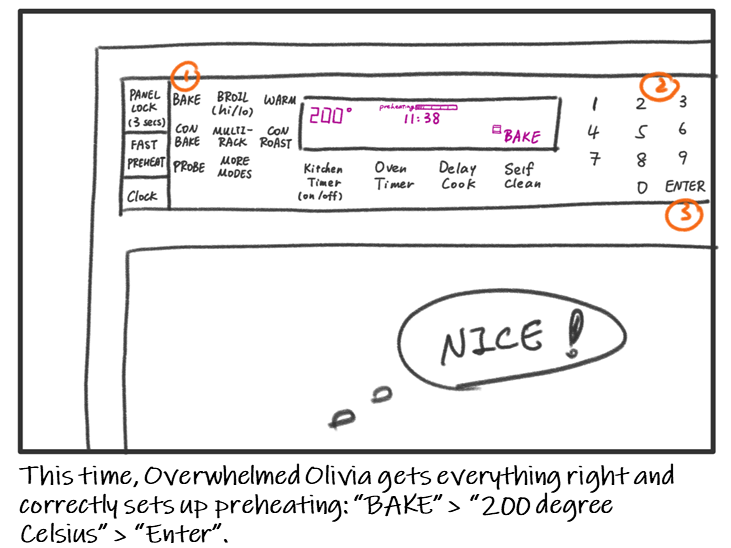 1
2
PANEL LOCK (3 secs)
BAKE
BROIL (hi/lo)
WARM
CON BAKE
MULTI-RACK
CON ROAST
FAST PREHEAT
PROBE
MORE MODES
Clock
200°
preheating
11:38
BAKE
Kitchen Timer (on/off)
Oven Timer
Delay Cook
Self Clean
1 2 3
4 5 6
7 8 9
0 ENTER
3
NICE!
This time, Overwhelmed Olivia gets everything right and
correctly sets up preheating: “BAKE” > “200 degree
Celsius” > “Enter”.